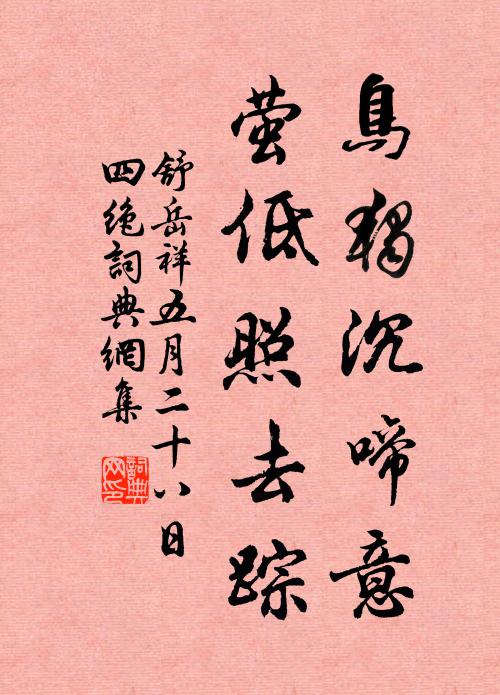 鳥獨沉啼意
萤低照去踪
舒岳祥五月二十八日
四絶詞典網集
詞典网印